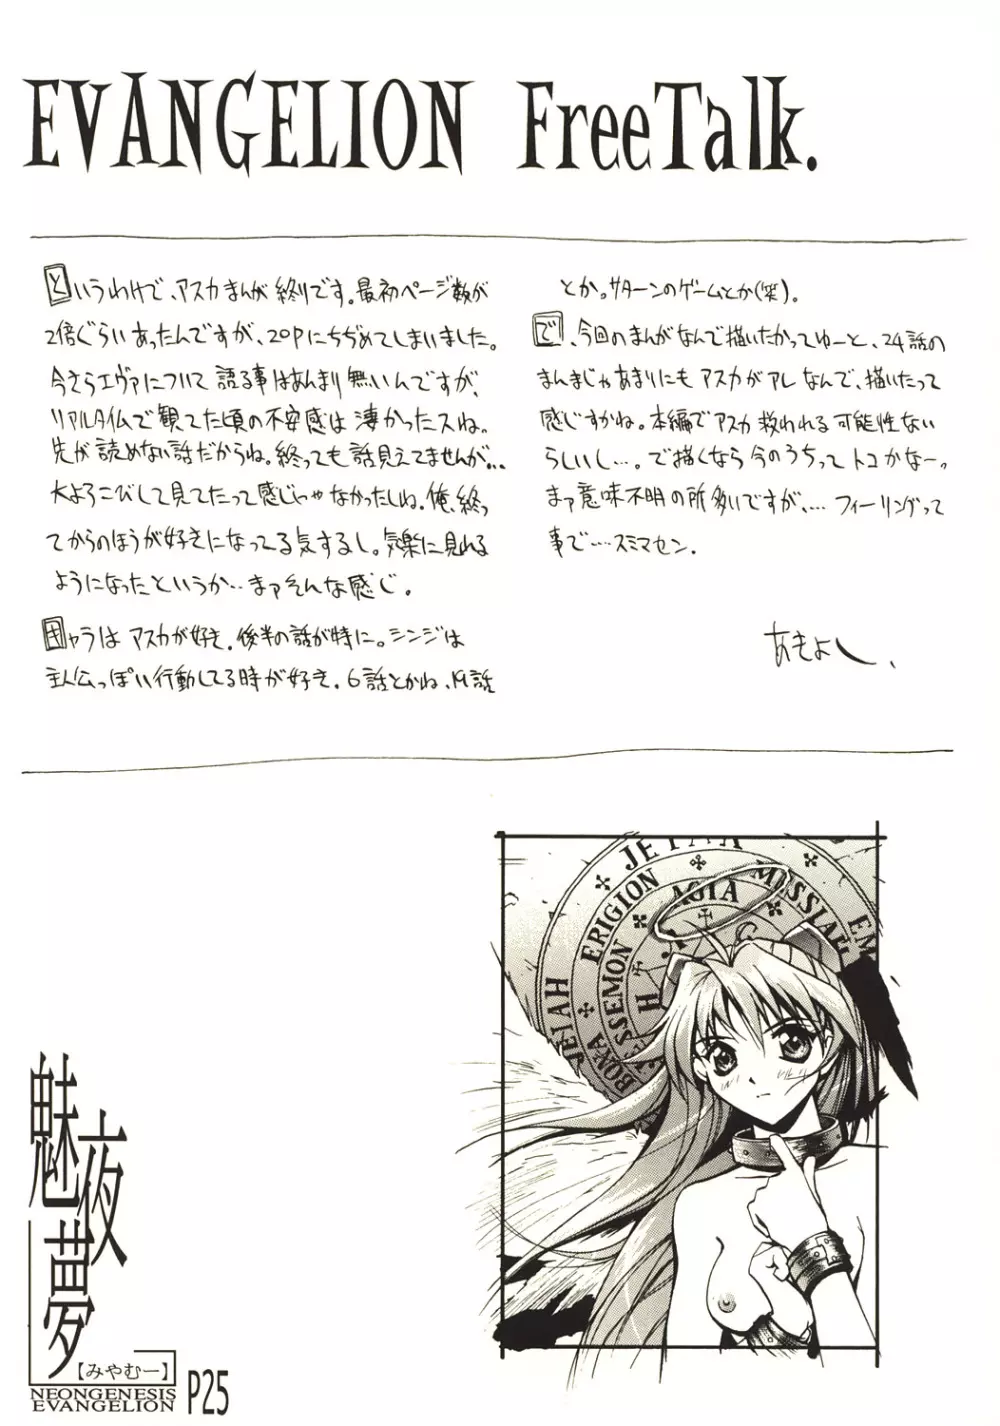 EVANGELION FreeTalk.
というわけで、アスカまんが終りです。最初ページ数が
2倍ぐらいあったんですが、20Pにちぢめてしまいました。
今さらエヴァについて語る事はあんまり無いんですが、
リアルタイムで観てた頃の不安感は凄かったスね。
先が読めない話だからね。終っても話見えてませんが…
大よろこびして見てたって感じじゃなかったしね。俺、終っ
てからのほうが好きになってる気するし。気楽に見れる
ようになったというか‥まァそんな感じ。
キャラはアスカが好き。後半の話が特に。シンジは
主人公っぽい行動してる時が好き。6話とかね、19話
とか。サターンのゲームとか(笑)。
で、今回のまんがなんで描いたかってゆーと、24話の
まんまじゃあまりにもアスカがアレなんで、描いたって
感じすかね。本編でアスカ救われる可能性ない
らしいし…。で描くなら今のうちってトコかなー。
まァ意味不明の所多いですが、…フィーリングって
事で‥‥スミマセン.
あきよし、
JEIAH
ERIGION
AGIA
MESSIAH
EM
JEIAH
BOXA
SSEMON
H
G
魅夜夢
【みやむー】
NEONGENESIS
EVANGELION
P25